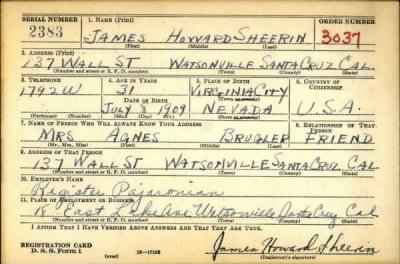 SERIAL NUMBER 1. NAME (Print) ORDER NUMBER
2383 JAMES HOWARD SHEERIN 3037
(First) (Middle) (Last)
2. ADDRESS (Print)
137 WALL ST WATSONVILLE SANTA CRUZ CAL.
(Number and street or R. F. D. number) (Town) (County) (State)
3. TELEPHONE 4. AGE IN YEARS 5. PLACE OF BIRTH 6. COUNTRY OF CITIZENSHIP
1792W 31 VIRGINIA CITY
DATE OF BIRTH
JULY 3 1909 NEVADA U.S.A.
(Mo.) (Day) (Yr.) (State or country)
7. NAME OF PERSON WHO WILL ALWAYS KNOW YOUR ADDRESS 8. RELATIONSHIP OF THAT PERSON
MRS AGNES BRUGLER FRIEND
(Mr., Mrs., Miss) (First) (Middle) (Last)
9. ADDRESS OF THAT PERSON
137 WALL ST WATSONVILLE SANTA CRUZ CAL
(Number and street or R. F. D. number) (Town) (County) (State)
10. EMPLOYER'S NAME
Register Pajaronian
11. PLACE OF EMPLOYMENT OR BUSINESS
East Lake Ave Watsonville Santa Cruz Cal
(Number and street or R. F. D. number) (Town) (County) (State)
I AFFIRM THAT I HAVE VERIFIED ABOVE ANSWERS AND THAT THEY ARE TRUE.
REGISTRATION CARD
D. S. S. Form 1 (over) 16-17105
James Howard Sheerin
(Registrant's signature)